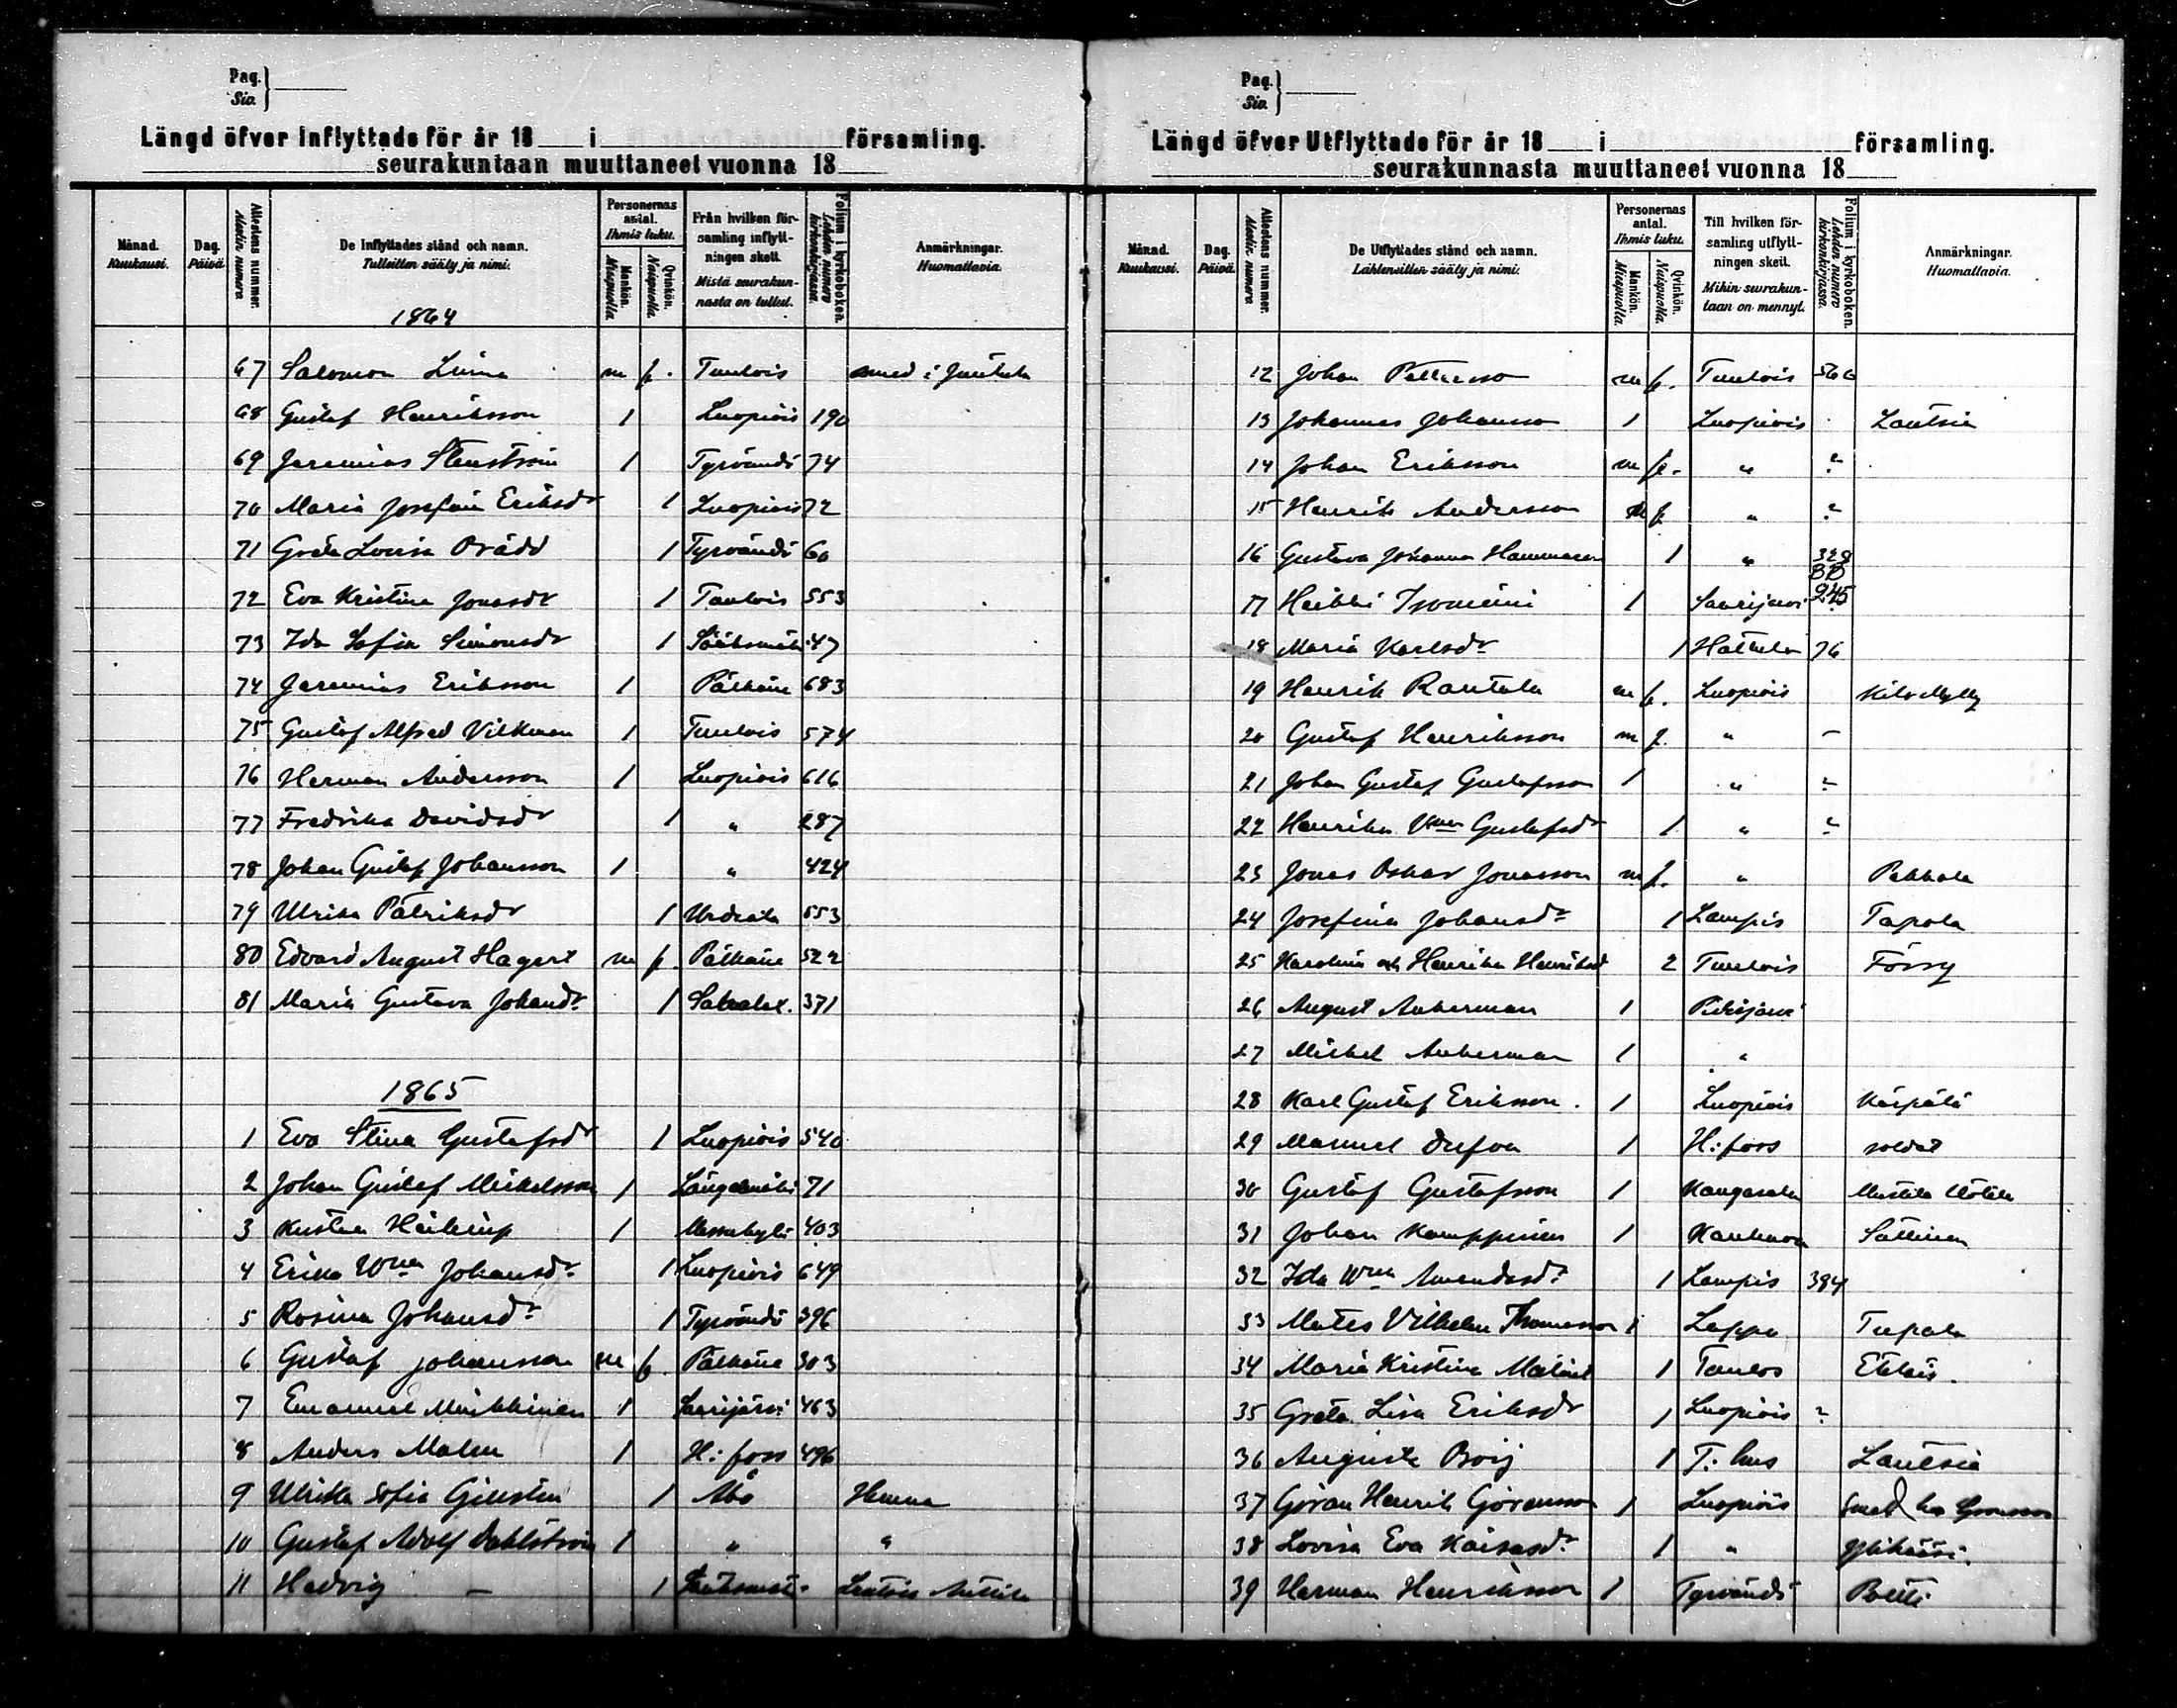 Pag.
Siv.
Längd öfver Inflyttade för år 18 i församling.
seurakuntaan muuttaneet vuonna 18
Månad. Kuukausi.
Dag. Päivä.
Attestens nummer. Atestin numero.
De Inflyttades stånd och namn. Tulleitten sääty ja nimi.
Personernas antal. Ihmis luku.
Mankön. Miespuolia.
Qvinkön. Naispuolia.
Från hvilken församling inflyttningen skett. Mistä seurakunnasta on tullut.
Folium i kyrkoboken. Lehden numero kirkonkirjassa.
Anmärkningar. Huomattavia.
1864
67 Salomon m f. Tuulois
68 Gustaf Henriksson 1 Luopiois 190
69 Jeremias Stenström 1 Tyrvändö 74
70 Maria Josefina Eriksdr 1 Luopiois 72
71 Greta Lovisa Brådd 1 Tyrvändö 60
72 Eva Kristina Jonasdr 1 Tuulois 553
73 Ida Sofia Simonsdr 1 Sääksmäki 47
74 Jeremias Eriksson 1 Pälkäne 683
75 Gustaf Alfred Vilkman 1 Tuulois 574
76 Herman Andersson 1 Luopiois 616
77 Fredrika Davidsdr 1 " 287
78 Johan Gustaf Johansson 1 " 424
79 Ulrika Patriksdr 1 Urdiala 553
80 Edvard August Hagert m f. Pälkäne 522
81 Maria Gustava Johansdr 1 Sahalax. 371
1865
1 Eva Stina Gustafsdr 1 Luopiois 540
2 Johan Gustaf Mickelsson 1 Längelmäki 71
3 Kustaa 1 Messukylä 403
4 Erika Wma Johansdr 1 Luopiois 649
5 Rosina Johansdr 1 Tyrvändö 396
6 Gustaf Johansson m f. Pälkäne 303
7 Emanuel Minkkinen 1 Saarijärvi 463
8 Anders Malm 1 H:fors 496
9 Ulrika Sofia 1 Åbo
10 Gustaf Adolf Dahlström 1 " "
11 Hedvig – 1 Sääksmäki
Pag.
Siv.
Längd öfver Utflyttade för år 18 i församling.
seurakunnasta muuttaneet vuonna 18
Månad. Kuukausi.
Dag. Päivä.
Attestens nummer. Atestin numero.
De Utflyttades stånd och namn. Lähteneitten sääty ja nimi.
Personernas antal. Ihmis luku.
Mankön. Miespuolia.
Qvinkön. Naispuolia.
Till hvilken församling utflyttningen skett. Mihin seurakuntaan on mennyt.
Folium i kyrkoboken. Lehden numero kirkonkirjassa.
Anmärkningar. Huomattavia.
12 Johan Pettersson m f. Tuulois 566
13 Johannes Johansson 1 Luopiois Lautsia
14 Johan Eriksson m f. " ?
15 Henrik Andersson m f " ?
16 Gustava Johanna Hammaren 1 " 328
17 Heikki Isomäini 1 Saarijärvi 245
18 Maria Karlsdr 1 Hattula 76
19 Henrik Rautala m f. Luopiois
20 Gustaf Henriksson m f. " –
21 Johan Gustaf Gustafsson 1 " ?
22 Henrika Vma Gustafsdr 1 " ?
23 Jonas Oskar Jonasson m f. " Pekkala
24 Josefina Johansdr 1 Lampis Tapola
25 Karolina och Henrika Henriksd 2 Tuulois
26 August Ankerman 1 Pidisjärvi
27 Mickel Ankerman 1 "
28 Karl Gustaf Eriksson. 1 Luopiois Kärpälä
29 Manuel Dufva 1 H:fors soldat
30 Gustaf Gustafsson 1 Kangasala
31 Johan Kamppinen 1 Kauhava
32 Ida Wma Amandasdr 1 Lampis 394
33 Mates Vilhelm Thomasson 1 Lappo
34 Maria Kristina 1 Tuulos
35 Greta Lisa Eriksdr 1 Luopiois ?
36 Augusta Boij 1 T:hus Lautsia
37 Göran Henrik Göransson 1 Luopiois
38 Lovisa Eva Kaisasdr 1 "
39 Herman Henriksson 1 Tyrvändö